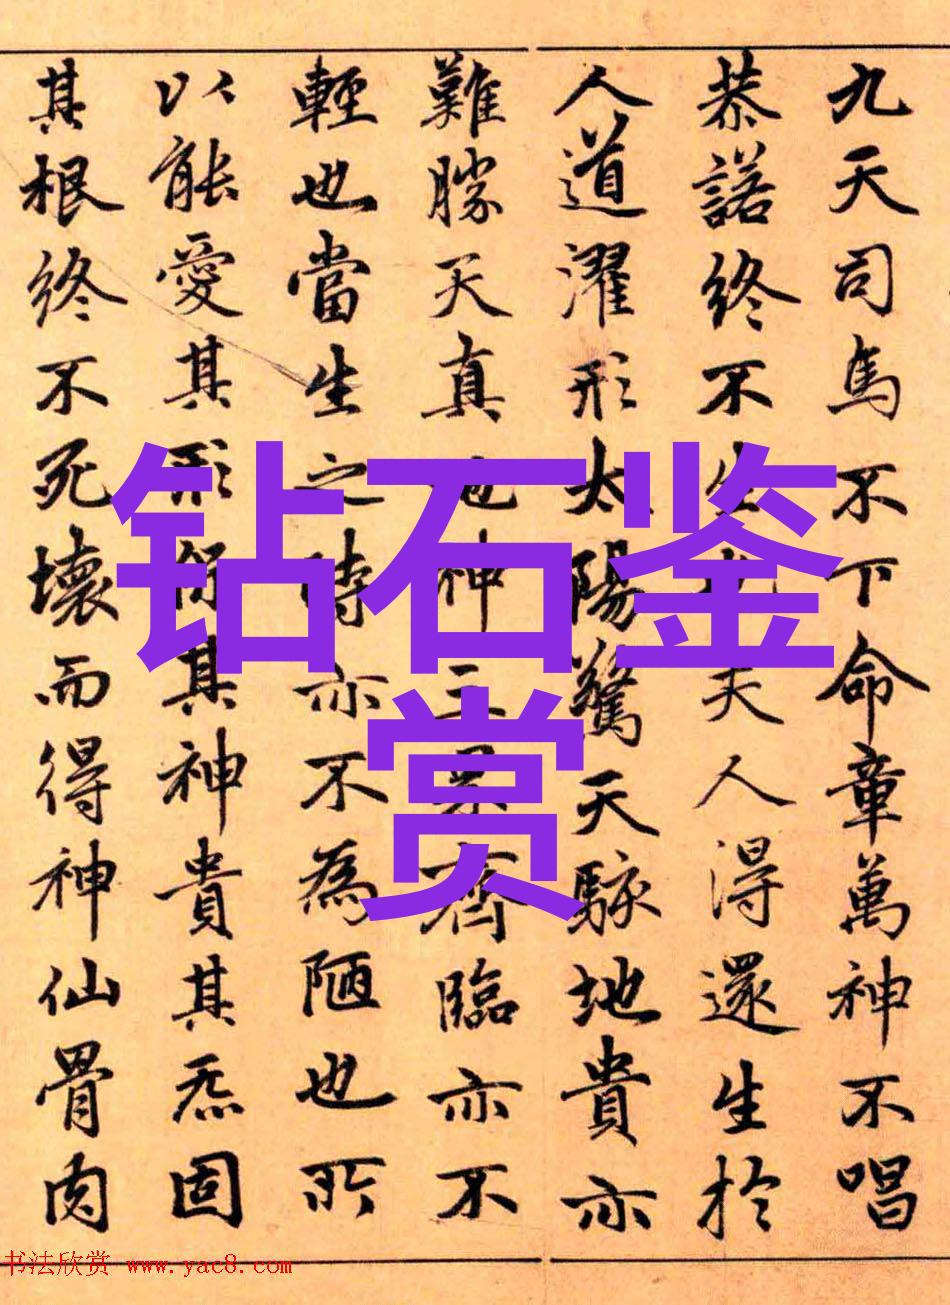 九天司馬不下命章萬神不唱
恭諾終不生天人得還生於
人道濯形太陽驚天駭地貴亦
難勝天真也神三界齊臨亦不
輕也當生之時亦不為陋也所
以能愛其形保其神貴其炁固
其根終不死壞而得神仙骨肉
钻石鉴
赏
书法欣赏 www.yac8.com